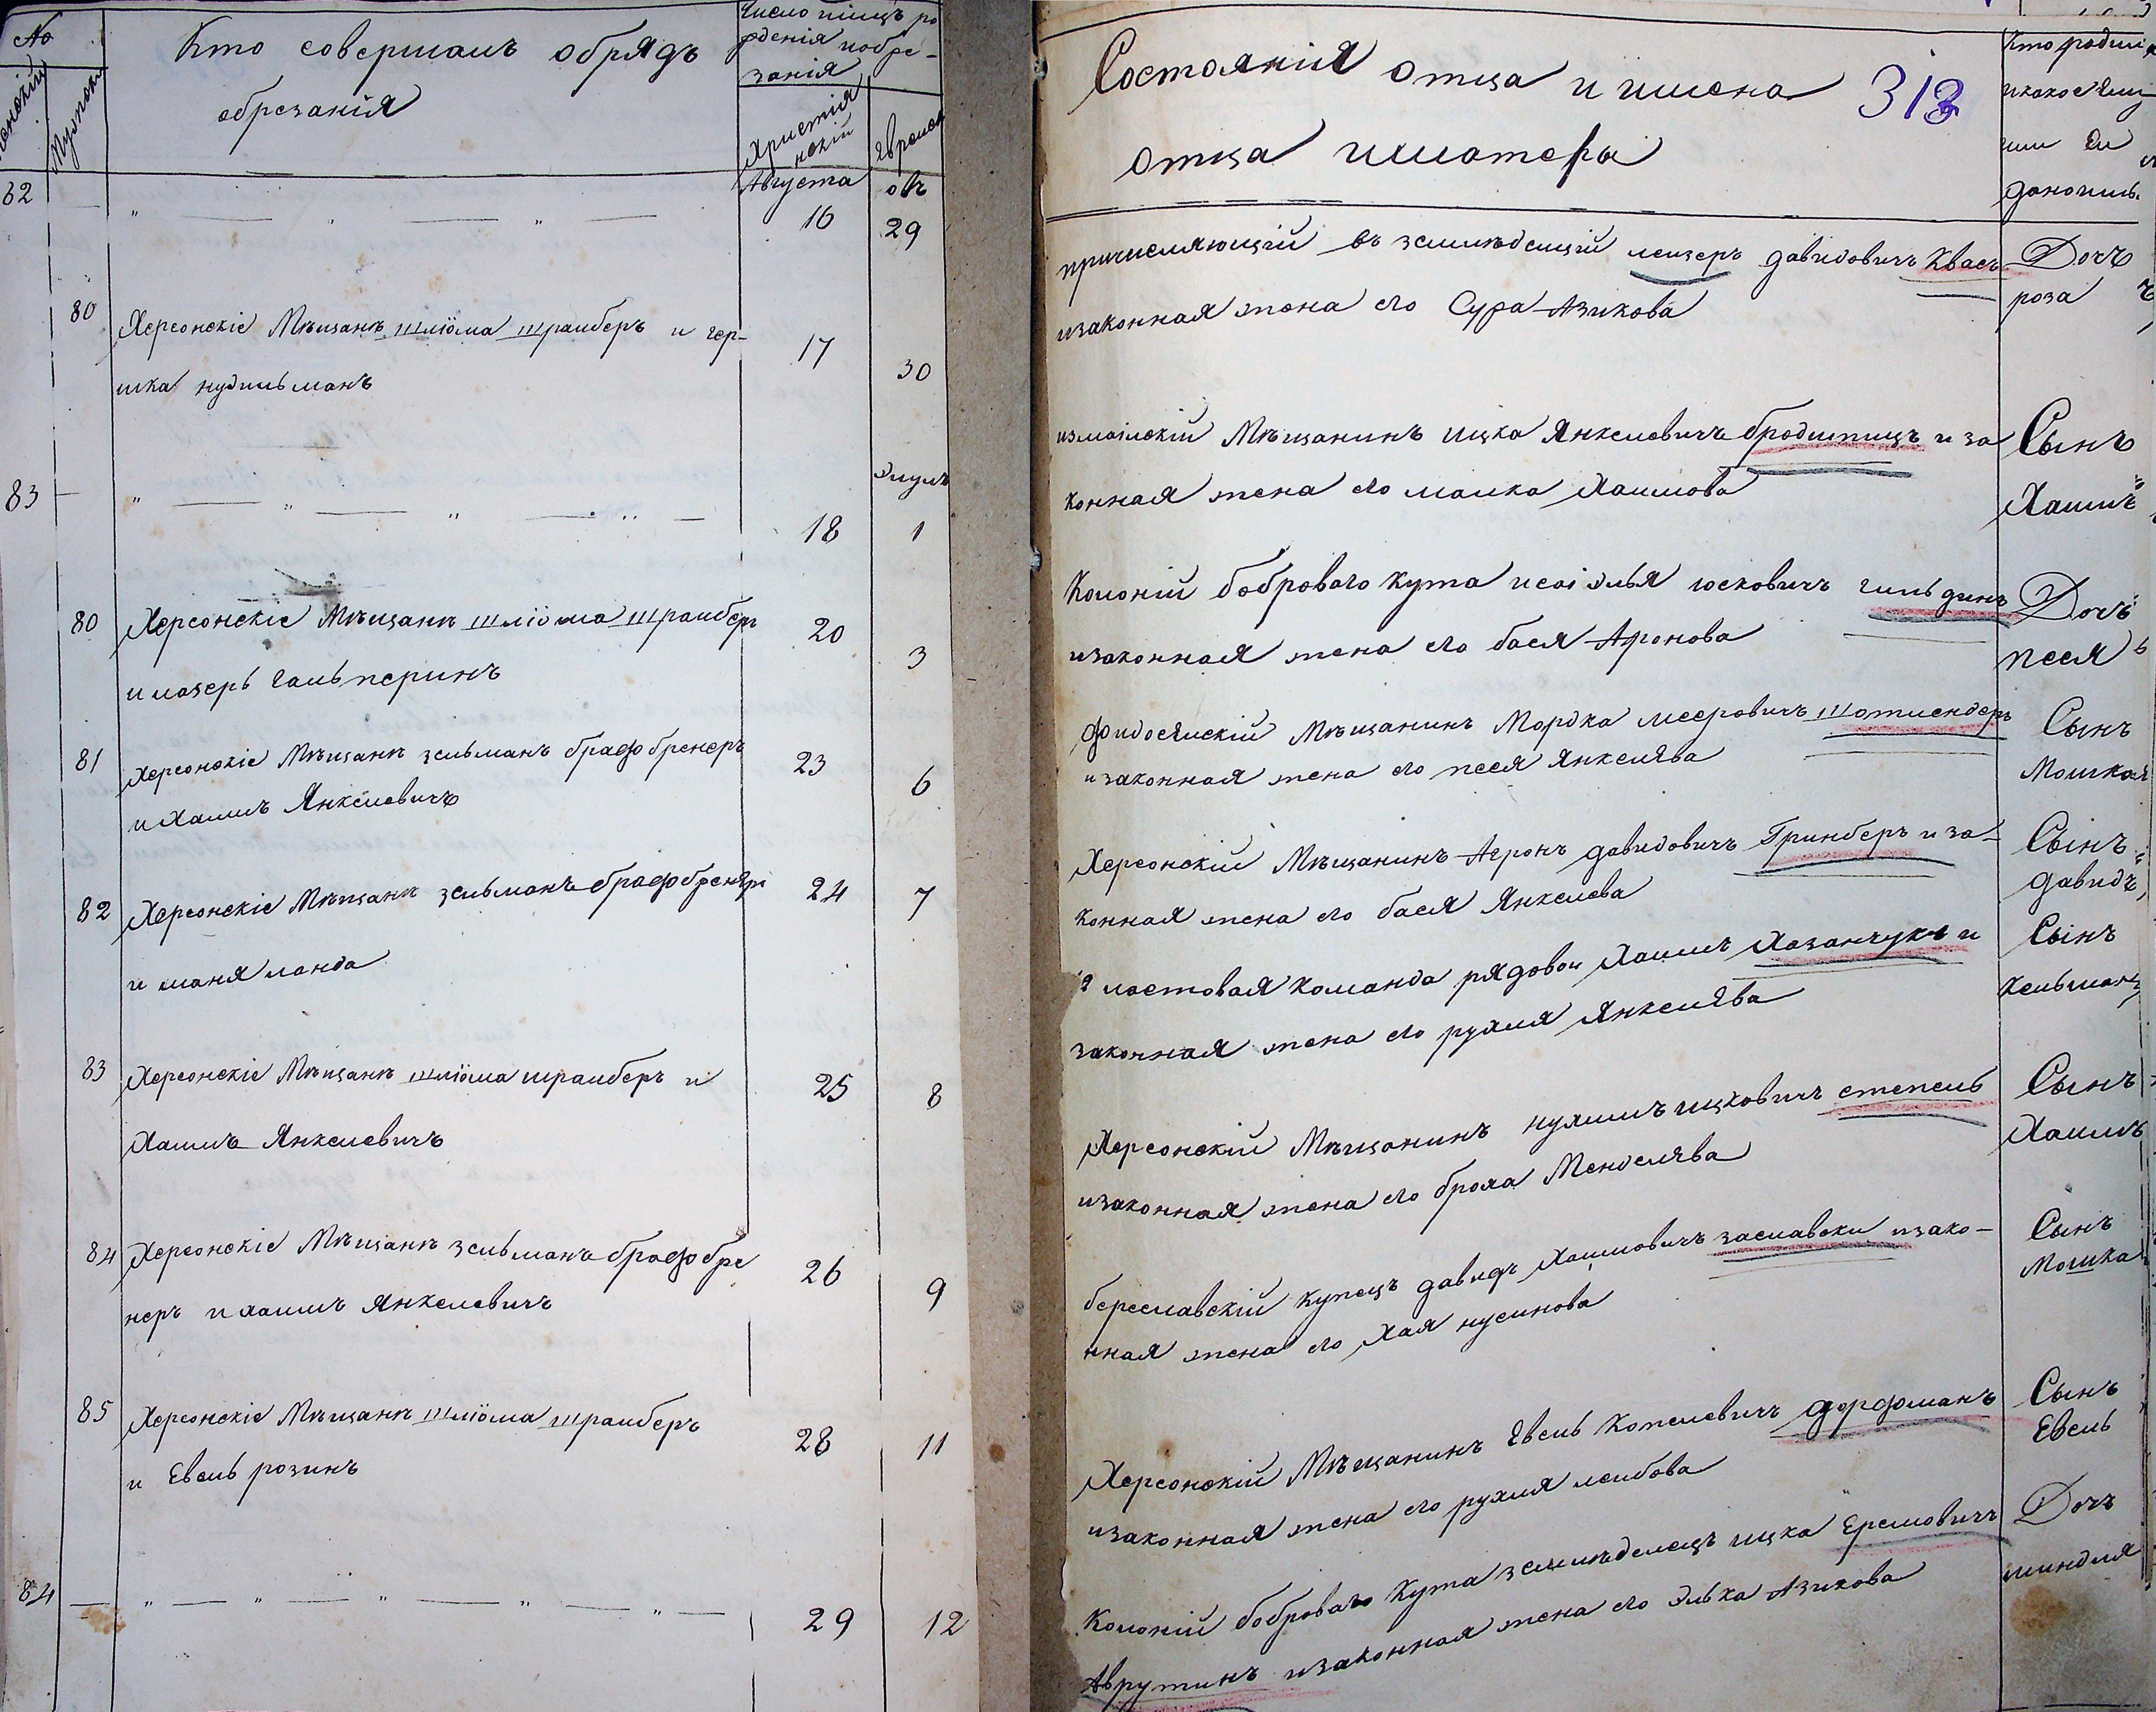 №
Женскій
Мужскій
Кто совершалъ обрядъ
обрезанія
Число
рденія иобре-
занія
Христія
нскій
Еврейск
62
Августа
овъ
16
29
80
Херсонскіе Мѣщанѣ шліома шрайберъ и гер-
шка нудильманъ
17
30
83
Элулъ
18
1
80
Херсонскіе Мѣщанѣ шліома шрайберъ
и лазерь Гальперинъ
20
3
81
Херсонскіе Мѣщанѣ зельманъ брафбренеръ
и Хаимъ Янкелевичъ
23
6
82
Херсонскіе Мѣщанѣ зельманъ
и маня ланда
24
7
83
Херсонскіе Мѣщанѣ шліома шрайберъ и
Хаимъ Янкелевичъ
25
8
84
Херсонскіе Мѣщанѣ зельманъ брафбре
неръ и хаимъ Янкелевичъ
26
9
85
Херсонскіе Мѣщанѣ шліома шрайберъ
и Евель розинъ
28
11
84
29
12
Состоянія отца и имена
отца иматери
313
Кто родился
или ей
дано имь
причисляющій въ лейзеръ давидовичъ Квасъ
изаконная жена его Сура Азикова
Дочъ
роза
измаілскій Мѣщанинъ ицка Янкелевичъ и за
конная жена его малка Хаимова
Сынъ
Хаимъ
Колоній боброваго Кута юсковичъ гильдинъ
изаконная жена его бася Аронова
Дочь
песя
Мѣщанинъ Мордка мееровичъ
изаконная жена его песя Янкелява
Сынъ
Мошка
Херсонскій Мѣщанинъ Агронъ давидовичъ Гринберъ и за-
конная жена его бася Янкелева
Сынъ
давидъ
2 ластовая команда рядовой Хаимъ Хазанчукъ и
законная жена его рухля Янкелява
Сынъ
Кельманъ
Херсонскій Мѣщанинъ нухимъ ицковичъ степель
изаконная жена его броха Менделява
Сынъ
Хаимъ
береславскій купецъ давидъ Хаимовичъ заславски изако-
нная жена его Хая нусинова
Сынъ
Мошка
Херсонскій Мѣщанинъ Евель Копелевичъ дорфманъ
изаконная жена его рухля лейбова
Сынъ
Евель
Колоній боброваго Кута земледелецъ ицка Еремовичъ
Аврутинъ изаконная жена его Элька Азикова
Дочъ
миндля